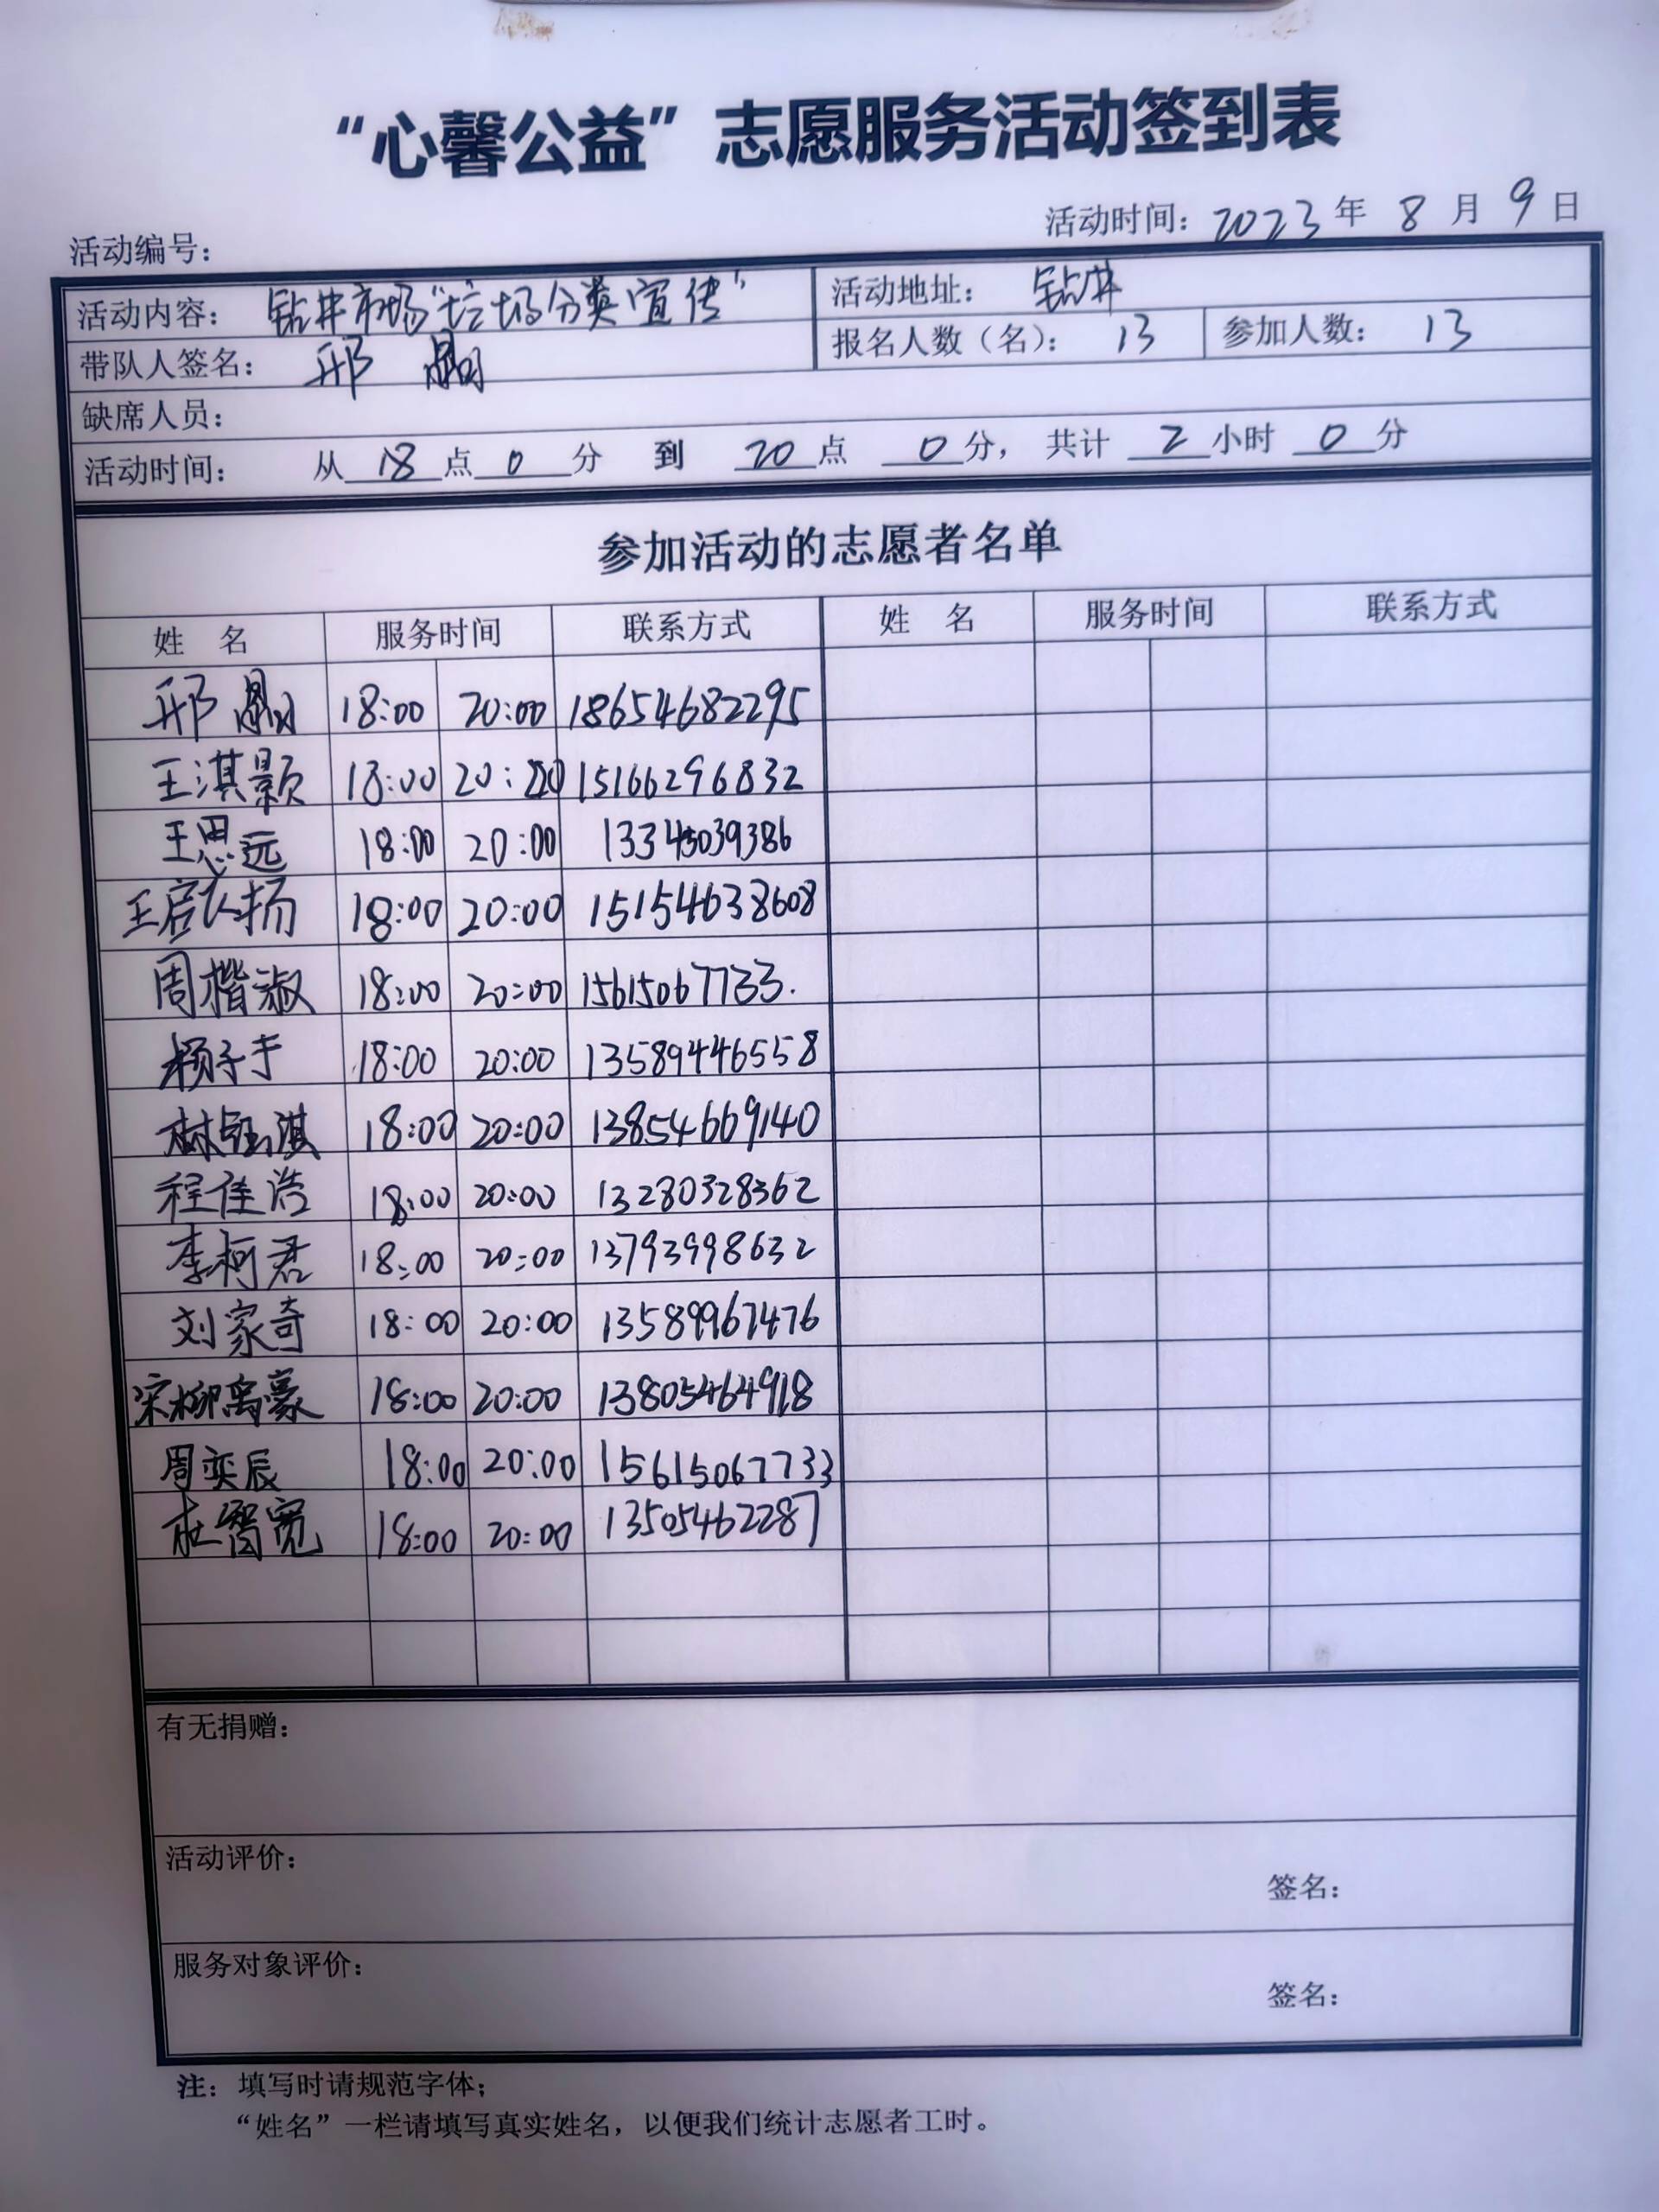 “心馨公益”志愿服务活动签到表
活动编号： 活动时间：2023年 8 月 9 日
活动内容： 钻井市场“垃圾分类宣传” 活动地址： 钻井
带队人签名： 邢 报名人数（名）： 13 参加人数： 13
缺席人员：
活动时间： 从 18 点 0 分 到 20 点 0 分， 共计 2 小时 0 分
参加活动的志愿者名单
姓 名 服务时间 联系方式 姓 名 服务时间 联系方式
邢 18:00 20:00 18654682295
王淇颢 18:00 20:00 15166296832
王思远 18:00 20:00 13345039386
王启弘扬 18:00 20:00 15154638608
周楷淑 18:00 20:00 15615067733.
杨子于 18:00 20:00 13589446558
林钰淇 18:00 20:00 13854669140
程佳浩 18:00 20:00 13280328362
李柯君 18:00 20:00 13793998632
刘家奇 18:00 20:00 13589967476
宋柳禹豪 18:00 20:00 13805464918
周奕辰 18:00 20:00 15615067733
杜智宽 18:00 20:00 13505462287
有无捐赠：
活动评价：
签名：
服务对象评价：
签名：
注：填写时请规范字体；
“姓名”一栏请填写真实姓名，以便我们统计志愿者工时。